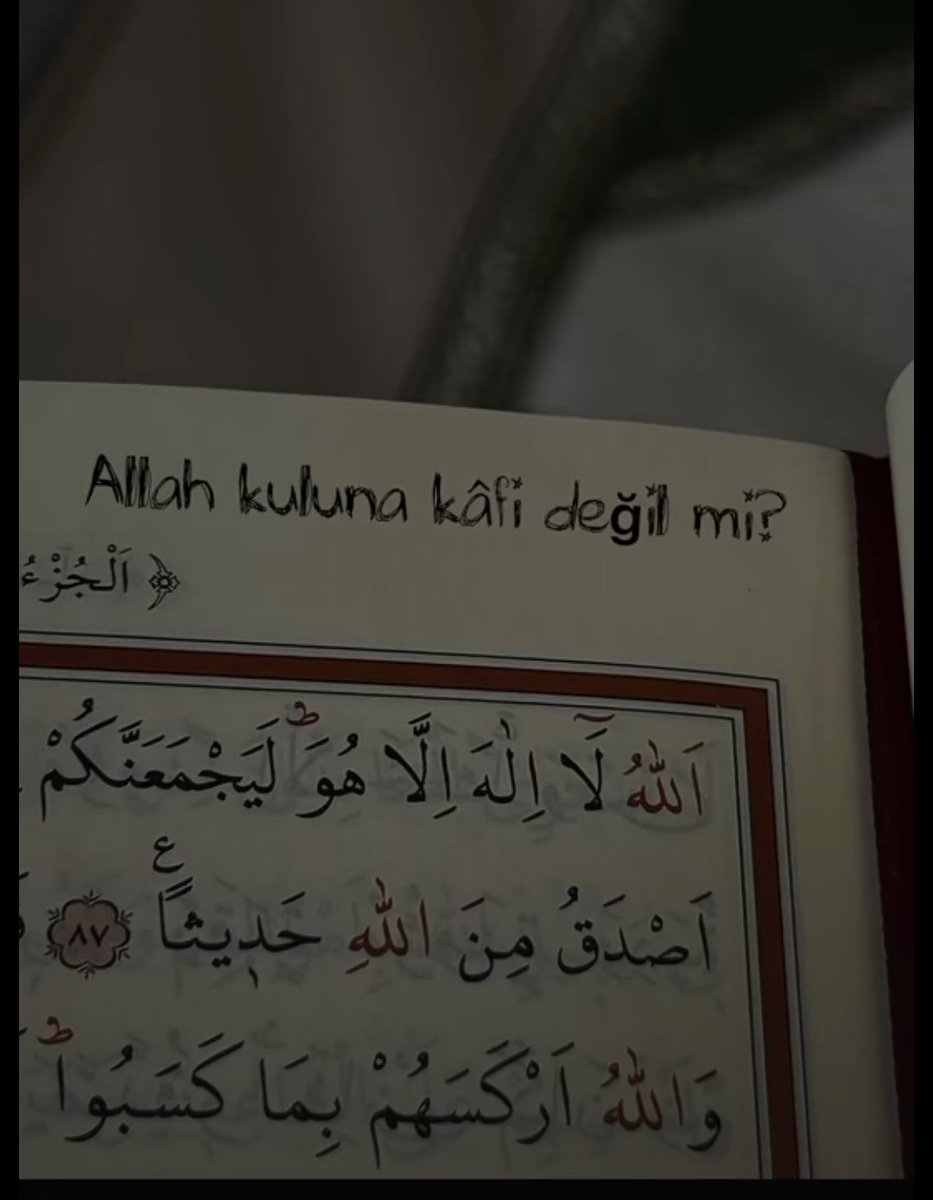 Allah kuluna kâfi değil mi?
﴿ اَلْجُزْءُ
اَللّٰهُ لَٓا اِلٰهَ اِلَّا هُوَ ط لَيَجْمَعَنَّكُمْ
اَصْدَقُ مِنَ اللّٰهِ حَد۪يثًا ع ٨٧
وَاللّٰهُ اَرْكَسَهُمْ بِمَا كَسَبُوا ط